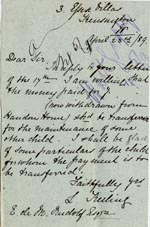 3. Villas
Kensington
W
April 28th/89
Dear Sir
In reply to your letter
of the 17th I am willing that
the money paid for
(now withdrawn from
Hendon Home) shd be transferred
for the maintenance of some
other child. I shall be glad
of some particulars of the child
for whom the payment is to
be transferred.
Faithfully yrs
S. Keeling
E. de M. Rudolf Esqre